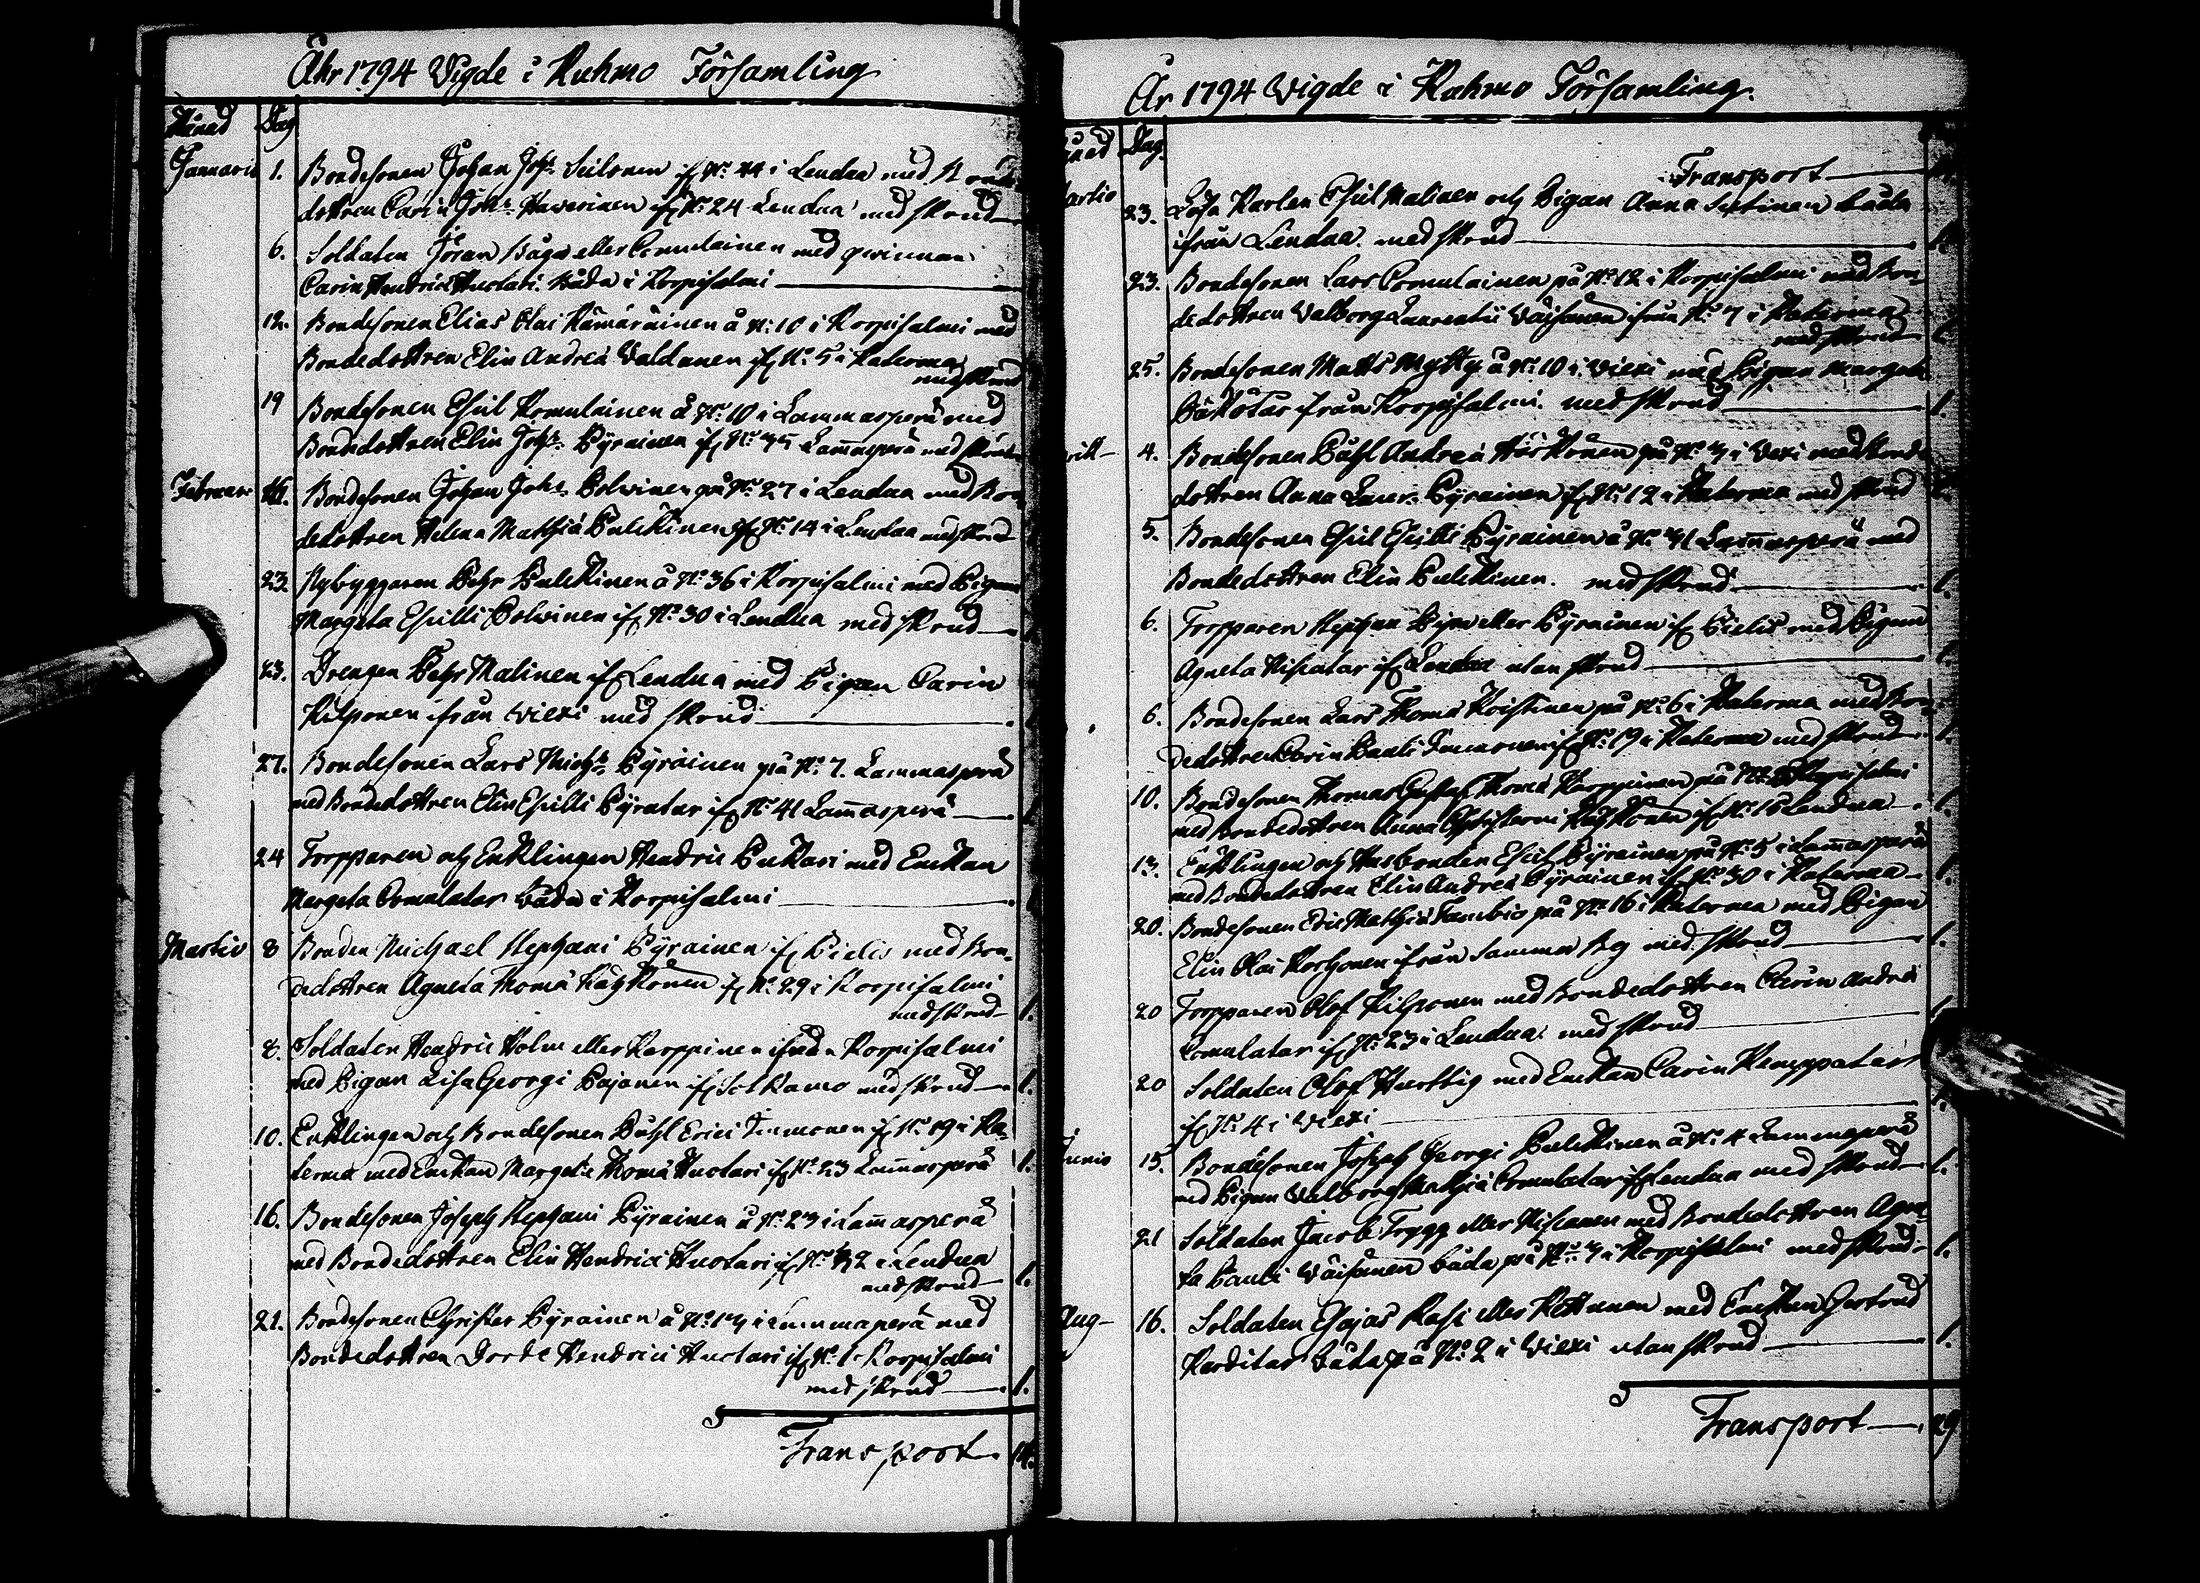 Åhr 1794 Vigde i Kuhmo Församling
Månad Dag
Januarii 1. Bondesonen Johan Johs Seilonen if No 44 i Lendua med Bonde
dottren Carin Johs Haverinen if No 24 Lendua med skrud
6. Soldaten Jöran Båga eller Comulainen med qwinnan
Carin Hendrici Huotari båda i Korpisalmi
12. Bondesonen Elias Olai Kämäräinen å No 10 i Korpisalmi med
Bondedottren Elin Andreä Valdanen if No 5 i Katerma
med skrud
19 Bondesonen Esuil Romulainen å No 10 i Lammasperä med
Bondedottren Elin Johs Pyrainen if No 35 Lammasperä med skrud
Februar 16. Bondesonen Johan Johs Polvinen på No 27 i Lendua med Bon
dedottren Helena Mathiä Pulckinen if No 14 i Lendua med skrud
23. Nybyggaren Pehr Pulckinen å No 36 i Korpisalmi med Pigan
Margeta Esuilli Polvinen if No 30 i Lendua med skrud
23. Drengen Pehr Malinen if Lendua med Pigan Carin
Kilponen ifrån Viexi med skrud
27. Bondesonen Lars Michs Pyräinen på No 7. Lammasperä
med Bondedottren Elin Esuilli Pyratar if No 41 Lammasperä
24 Torpparen och Enklingen Hendric Puckari med Enckan
Margeta Comulatar båda i Korpisalmi
Martio 8 Bonden Michael Stephani Pyrainen if Pielis med Bon-
dedottren Agneta Thomä Käykönen if No 29 i Korpisalmi
med skrud 1.
8. Soldaten Hendric Holm eller Karppinen ifrån Korpisalmi
med Pigan Lisa Georgi Pajanen if Sotkamo med skrud 1.
10. Enklingen och Bondesonen Påhl Erici Timonen if No 19 i Ka-
terma med Enckan Margeta Thomä Huotari if No 23 Lammasperä 1.
16. Bondesonen Joseph Stephani Pyrainen å No 23 i Lammasperä
med Bondedottren Elin Hendrici Huotari if No 32 i Lendua
med skrud 1.
21. Bondesonen Christer Pyrainen å No 13 i Lammasperä med
Bondedottren Dorde Hendrici Huotari if No 1. Korpisalmi
med skrud 1.
Transport 14.
År 1794 Vigde i Kuhmo Församling.
Dag
Transport
23. Lösa Karlen Esuil Malinen och Pigan Anna Sutinen båda
ifrån Lendua. med skrud 1.
23. Bondesonen Lars Comulainen på No 12 i Korpisalmi med Bon-
dedottren Valborg Laurentii Väisänen ifrån No 7 i Katerma
med skrud
25. Bondesonen Matts Mytty å No 10 i Viexi med Pigan Margeta
ifrån Korpisalmi. med skrud 1.
4. Bondesonen Påhl Andreä Härkönen på No 3 i Viexi med Bonde
dottren Anna Laur. Pyrainen if No 12 i Katerma med skrud
5. Bondesonen Esuil Esuilli Pyrainen å No 41 Lammasperä med
Bondedottren Elin Pulckinen. med skrud 1.
6. Torpparen Stephan Pipo eller Pyrainen if Pielis med Pigan
Agneta Niskatar if Lendua utan skrud
6. Bondesonen Lars Thomä Koistinen på No 6 i Katerma med Bon-
dedottren Carin Pauli Timonen if No 19 i Katerma med skrud 1.
10. Bondesonen Thomas Gustaf Thomä Karppinen på No Korpisalmi
med Bondedottren Anna Christierni Käykönen if No 16 Lendua 1.
13. Enklingen och Husbonden Esuil Pyrainen på No 5 i Lammasperä
med Bondedottren Elin Andreä Pyrainen if No 30 i Katerma 1.
20. Bondesonen Eric Mathiä Tambio på No 16 i Katerma med Pigan
Elin Olai Korhonen ifrån samma By med skrud 1.
20 Torpparen Olof Kilponen med Bondedottren Carin Andreä
Comulatar if No 23 i Lendua med skrud
20 Soldaten Olof Hurttig med Enckan Carin Kemppatar
if No 4 i Viexi 1.
Junio 15. Bondesonen Joseph Georgi Pulckinen å No 4 Lammasperä
med Pigan Valborg Mathiä Comulatar if Lendua med skrud 1.
21 Soldaten Jacob Trygg eller Niskanen med Bondedottren Agne-
ta Pauli Väisänen båda på No 3 i Korpisalmi med skrud 1.
Aug 16. Soldaten Esajas Rask eller Kettunen med Enckan Gertrud
Karditar båda på No 2 i Viexi utan skrud 1.
Transport 29